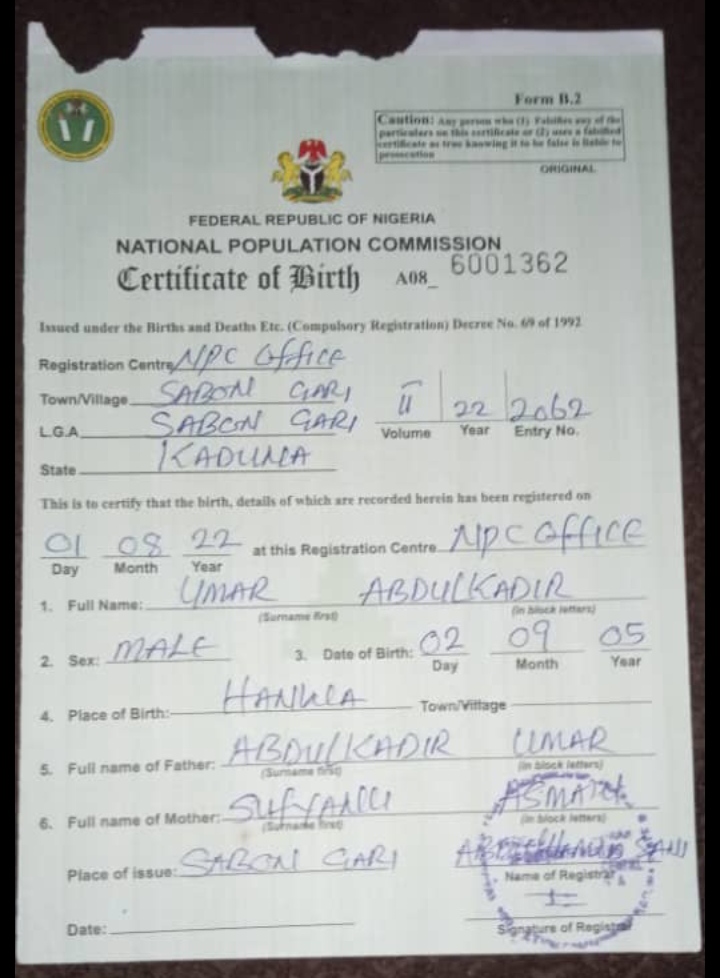 Form B.2
Caution: Any person who (1) Falsifies any of the
particulars on this certificate or (2) uses a falsified
certificate as true knowing it to be false is liable to
prosecution
ORIGINAL
FEDERAL REPUBLIC OF NIGERIA
NATIONAL POPULATION COMMISSION
Certificate of Birth A08_ 6001362
Issued under the Births and Deaths Etc. (Compulsory Registration) Decree No. 69 of 1992
Registration Centre NPC OFFICE
Town/Village SABON GARI
L.G.A SABON GARI II 22 2062
Volume Year Entry No.
State KADUNA
This is to certify that the birth, details of which are recorded herein has been registered on
01 08 22 at this Registration Centre NPC OFFICE
Day Month Year
1. Full Name: UMAR ABDULKADIR
(Surname first) (in block letters)
2. Sex: MALE 3. Date of Birth: 02 09 05
Day Month Year
4. Place of Birth: Town/Village
5. Full name of Father: ABDULKADIR UMAR
(Surname first) (in block letters)
6. Full name of Mother: SUFYANU
(Surname first) (in block letters)
Place of issue: SABON GARI SANI
Name of Registrar
Date:
Signature of Registrar